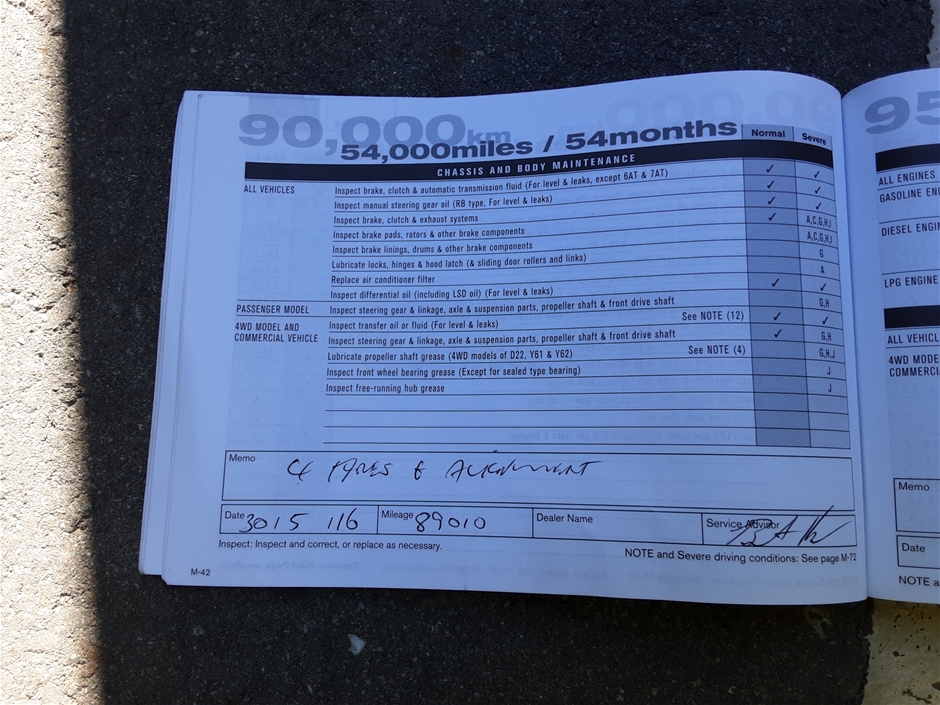 90,000km
54,000miles / 54months
Normal Severe
CHASSIS AND BODY MAINTENANCE
ALL VEHICLES
Inspect brake, clutch & automatic transmission fluid (For level & leaks, except 6AT & 7AT) ✓ ✓
Inspect manual steering gear oil (RB type, For level & leaks) ✓ ✓
Inspect brake, clutch & exhaust systems ✓ ✓
Inspect brake pads, rotors & other brake components ✓ A,C,G,H,I
Inspect brake linings, drums & other brake components A,C,G,H,I
Lubricate locks, hinges & hood latch (& sliding door rollers and links) G
Replace air conditioner filter A
Inspect differential oil (including LSD oil) (For level & leaks) ✓ ✓
PASSENGER MODEL Inspect steering gear & linkage, axle & suspension parts, propeller shaft & front drive shaft G,H
4WD MODEL AND
COMMERCIAL VEHICLE
Inspect transfer oil or fluid (For level & leaks) See NOTE (12) ✓ ✓
Inspect steering gear & linkage, axle & suspension parts, propeller shaft & front drive shaft ✓ G,H
Lubricate propeller shaft grease (4WD models of D22, Y61 & Y62) See NOTE (4) G,H,J
Inspect front wheel bearing grease (Except for sealed type bearing) J
Inspect free-running hub grease J
Memo
4 TYRES & ALIGNMENT
Date 30 15 116 Mileage 89010 Dealer Name Service Advisor
Inspect: Inspect and correct, or replace as necessary.
NOTE and Severe driving conditions: See page M-72
M-42
95
ALL ENGINES
GASOLINE EN
DIESEL ENGIN
LPG ENGINE
ALL VEHICL
4WD MODE
COMMERCI
Memo
Date
NOTE a